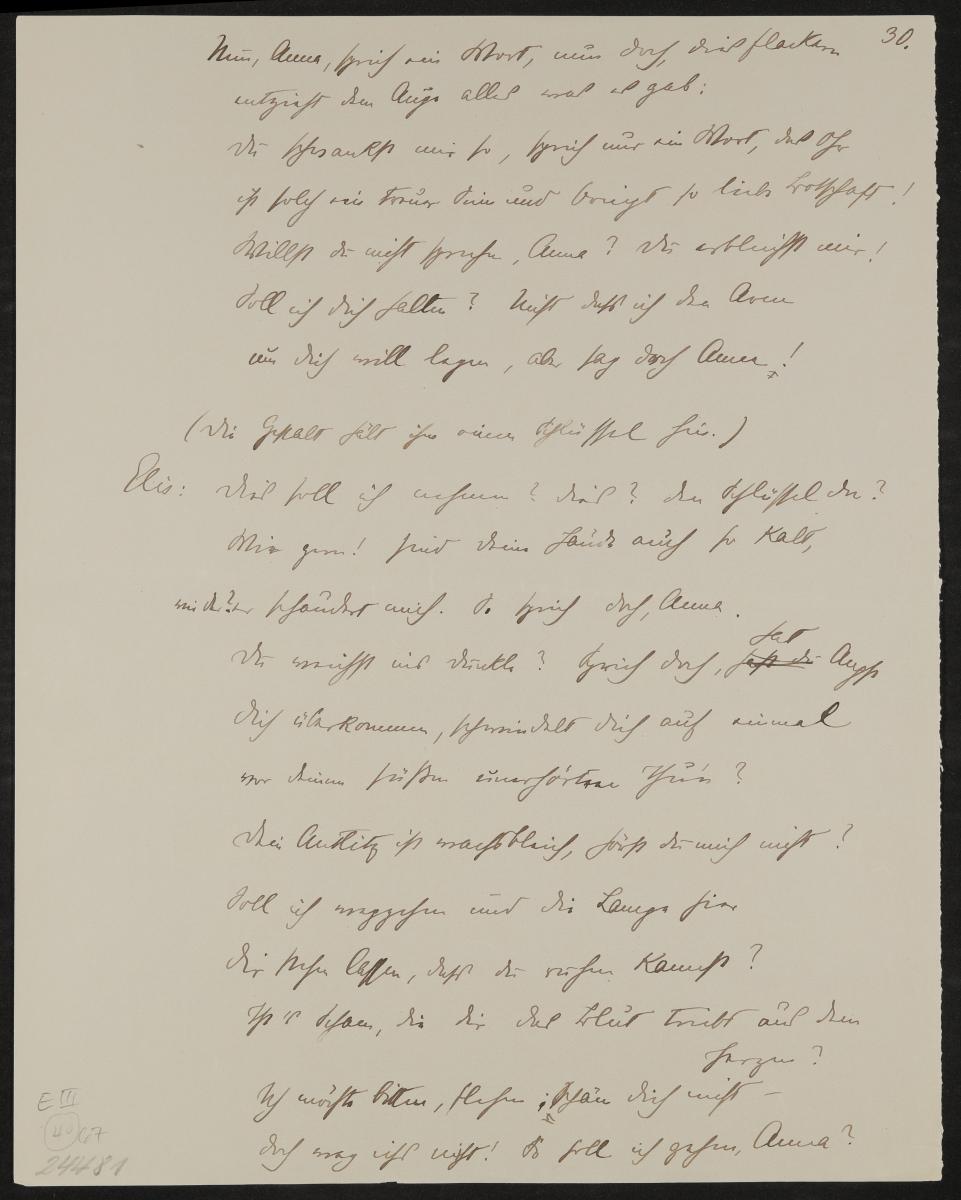 30.
Nun, Anna, sprich ein Wort, nun doch, dies flackern
entzieht dem Auge alles was es gab:
Du schwankst mir so, sprich nur ein Wort, das Ohr
ist solch ein treuer Sinn und bringt so liebe Botschaft!
Willst du nicht sprechen, Anna? Du erbleichst mir!
Soll ich dich halten? Nicht dass ich den Arm
um dich will legen, aber sag doch Anna!
(Die Gestalt hält ihm einen Schlüssel hin.)
Elis: Dies soll ich nehmen? dies? den Schlüssel da?
Wie gern! sind deine Hände auch so kalt,
mich schaudert mich. So sprich doch, Anna.
Du weichst ins dunkle? Sprich doch, hat
hast du Angst
dich überkommen, schwindelt dich auf einmal
vor deinem süßen unerhörten Thun?
Dein Antlitz ist wachsbleich, hörst du mich nicht?
Soll ich weggehen und die Lampe hier
dir stehen lassen, dass du ruhen kannst?
Ist's Scham, die dir das Blut treibt aus dem
Herzen?
Ich möchte bitten, flehen: Schäm dich nicht –
doch wag ichs nicht! So soll ich gehen, Anna?
E III
40 67
24481